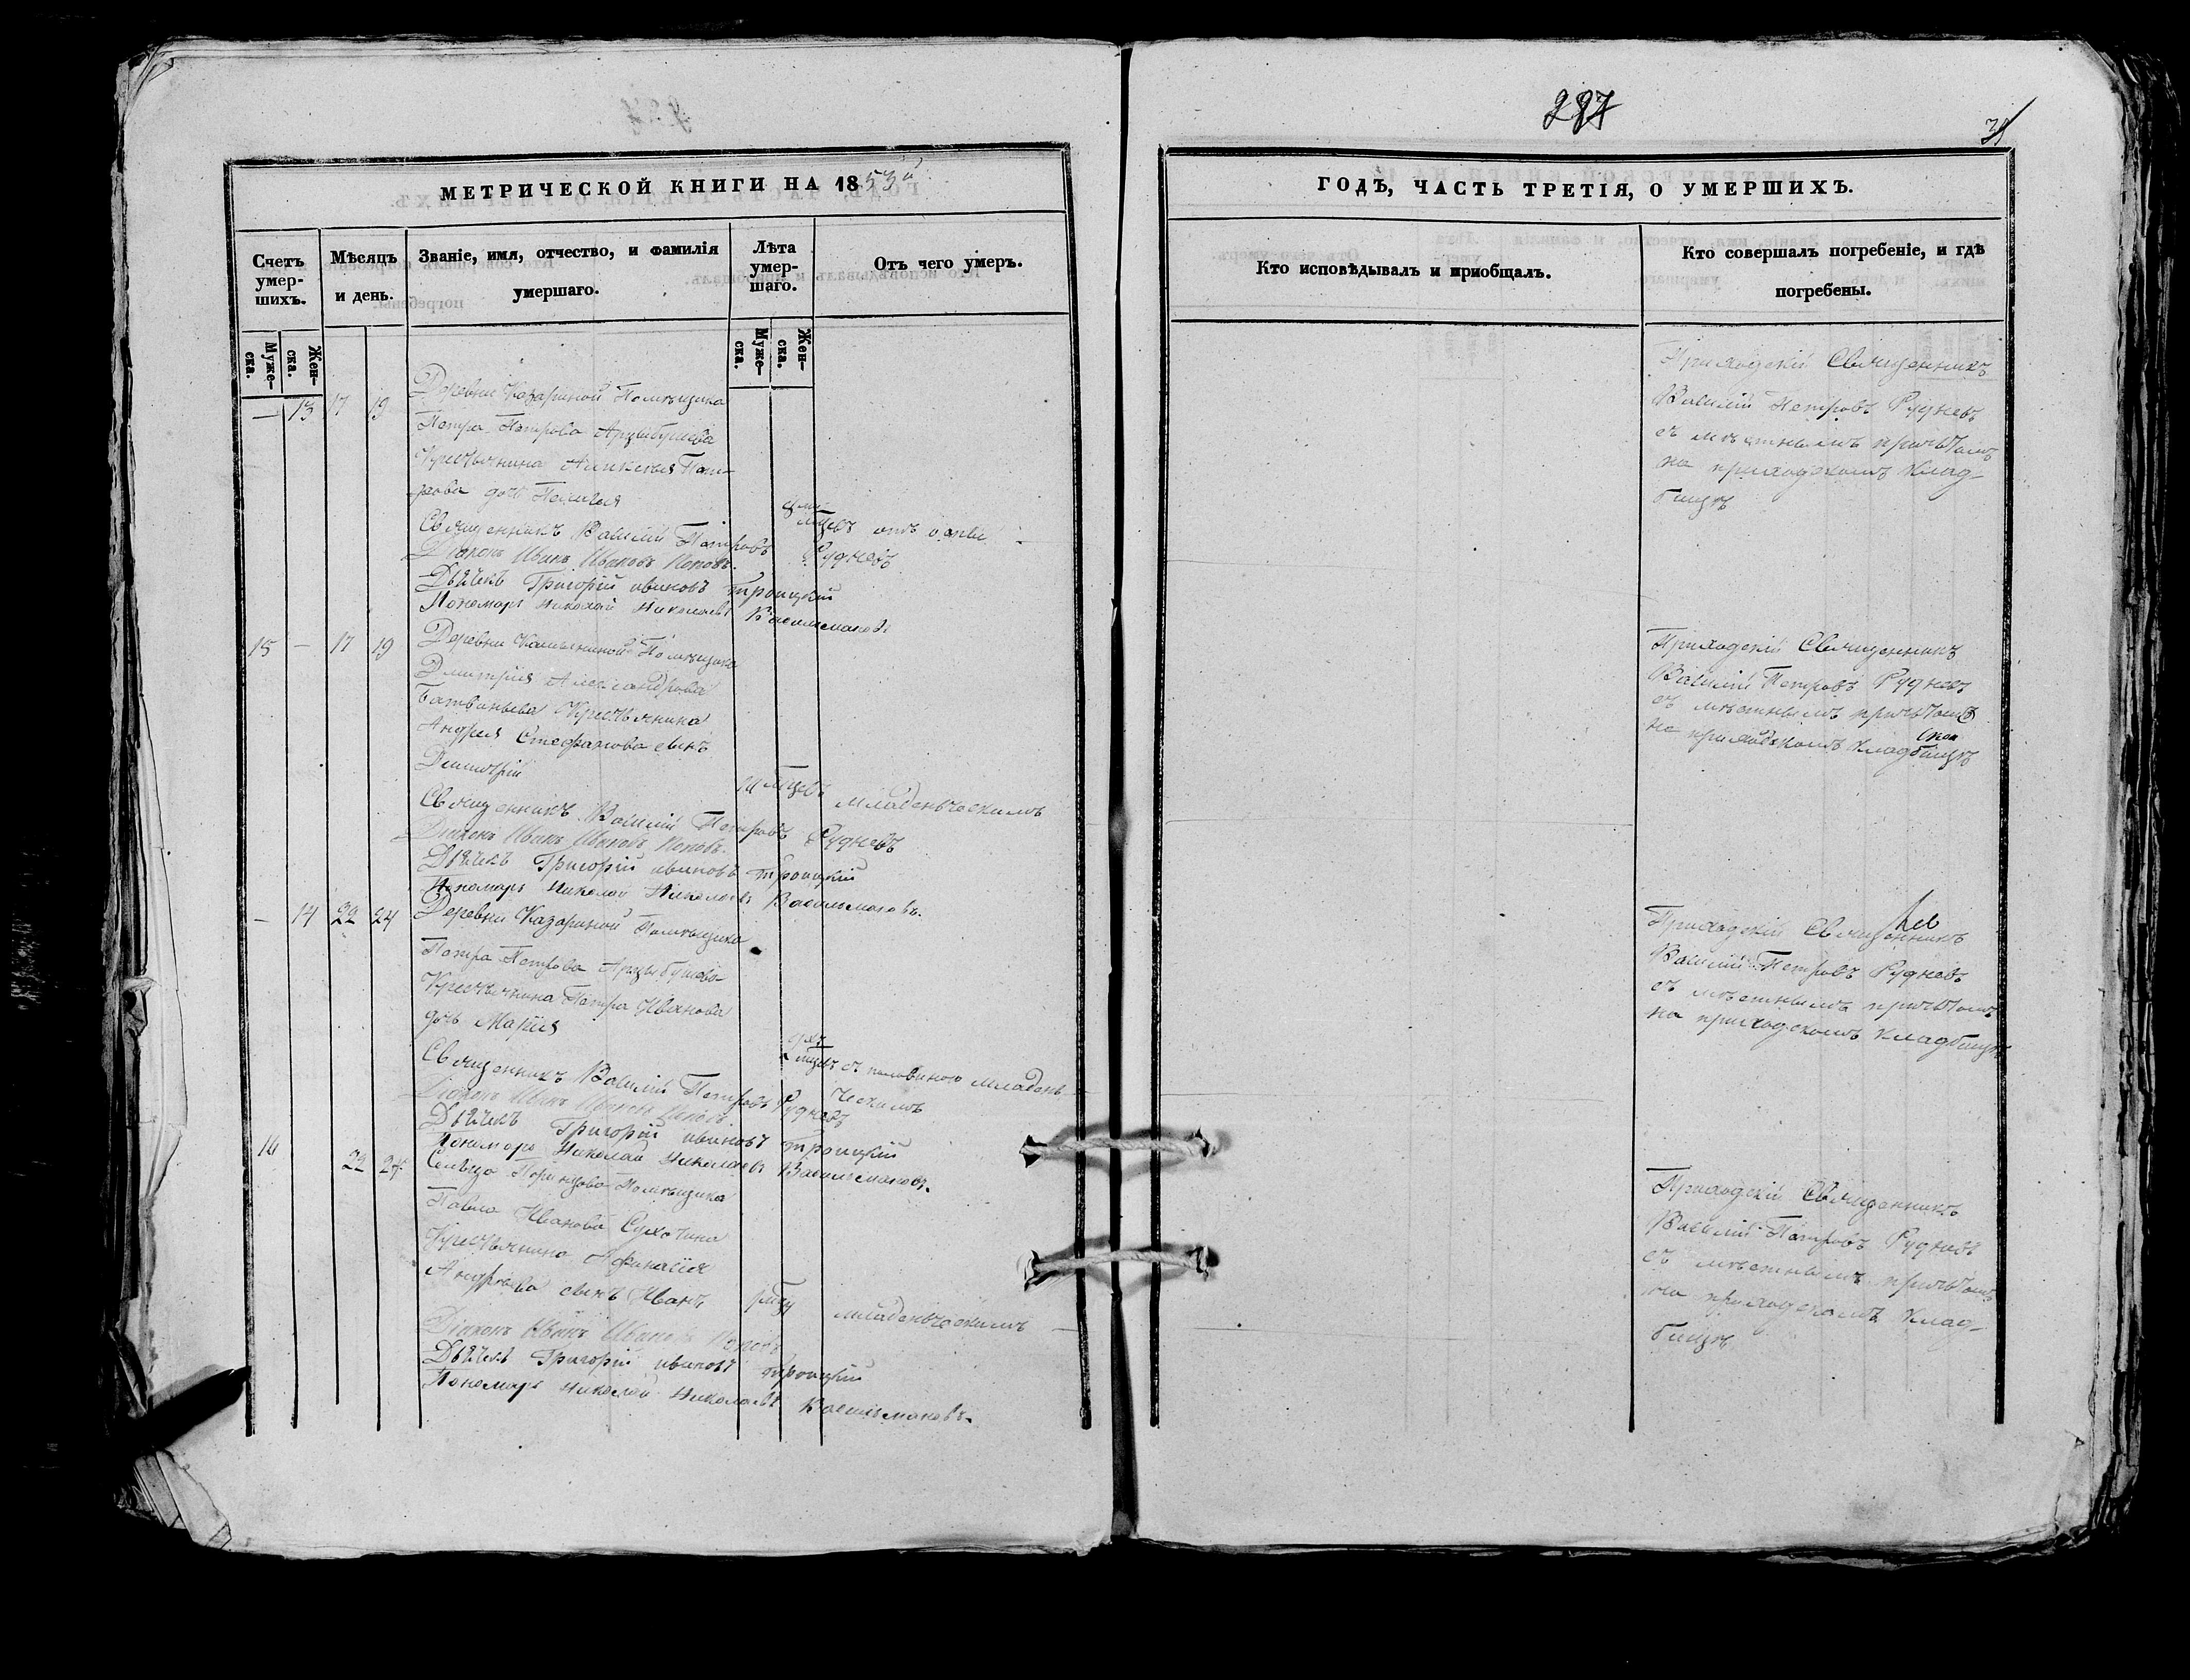 297
МЕТРИЧЕСКОЙ КНИГИ НА 1853й
ГОДЪ, ЧАСТЬ ТРЕТІЯ, О УМЕРШИХЪ.
Счетъ умер-шихъ.
Мѣсяцъ и день.
Званіе, имя, отчество, и фамилія умершаго.
Лѣта умер-шаго.
Отъ чего умеръ.
Кто исповѣдывалъ и приобщалъ.
Кто совершалъ погребеніе, и гдѣ погребены.
Муже-ска.
Жен-ска.
Муже-ска.
Жен-ска.
— 13 17 19
Деревни Казариной Помѣщика
Петра Петрова Арцыбушева
Крестьянина Алексѣя Пет-
рова дочь Пелагея
8ми мцевъ отъ оспы
Священникъ Василій Петровъ Рудневъ
Діаконъ Иванъ Ивановъ Поповъ.
Дьячекъ Григорій ивановъ троицкій
Пономарь николай николаевъ Васильмановъ
Приходскій Священникъ
Василій Петровъ Рудневъ
съ мѣстнымъ причтомъ
на приходскомъ клад-
бищѣ
15 — 17 19
Деревни Помѣщика
Дмитрія Александрова
Батвиньева Крестьянина
Андрея Стефанова сынъ
Димитрій
мцевъ младенческимъ
Священникъ Василій Петровъ Рудневъ
Діаконъ Иванъ Ивановъ Поповъ.
Дьячекъ Григорій ивановъ троицкій
Пономарь николай николаевъ Васильмановъ.
Приходскій Священникъ
Василій Петровъ Рудневъ
съ мѣстнымъ причтомъ
на приходскомъ кладбищѣ
— 14 22 24
Деревни Казариной Помѣщика
Петра Петрова Арцыбушева
Крестьянина Петра Иванова
дочь Марія
2хъ мцевъ съ половиною младен-
ческимъ
Священникъ Василій Петровъ Рудневъ
Діаконъ Иванъ Ивановъ Поповъ
Дьячекъ Григорій ивановъ троицкій
Пономарь николай николаевъ Васильмановъ.
Приходскій Священникъ
Василій Петровъ Рудневъ
съ мѣстнымъ причтомъ
на приходскомъ кладбищѣ
16 22 24
Сельца Помѣщика
Павла Иванова Сухотина
Крестьянина Афанасія
Андреева сынъ Иванъ
младенческимъ
Діаконъ Иванъ Ивановъ Поповъ
Дьячекъ Григорій ивановъ троицкій
Пономарь николай николаевъ Васильмановъ.
Приходскій Священникъ
Василій Петровъ Рудневъ
съ мѣстнымъ причтомъ
на приходскомъ клад-
бищѣ